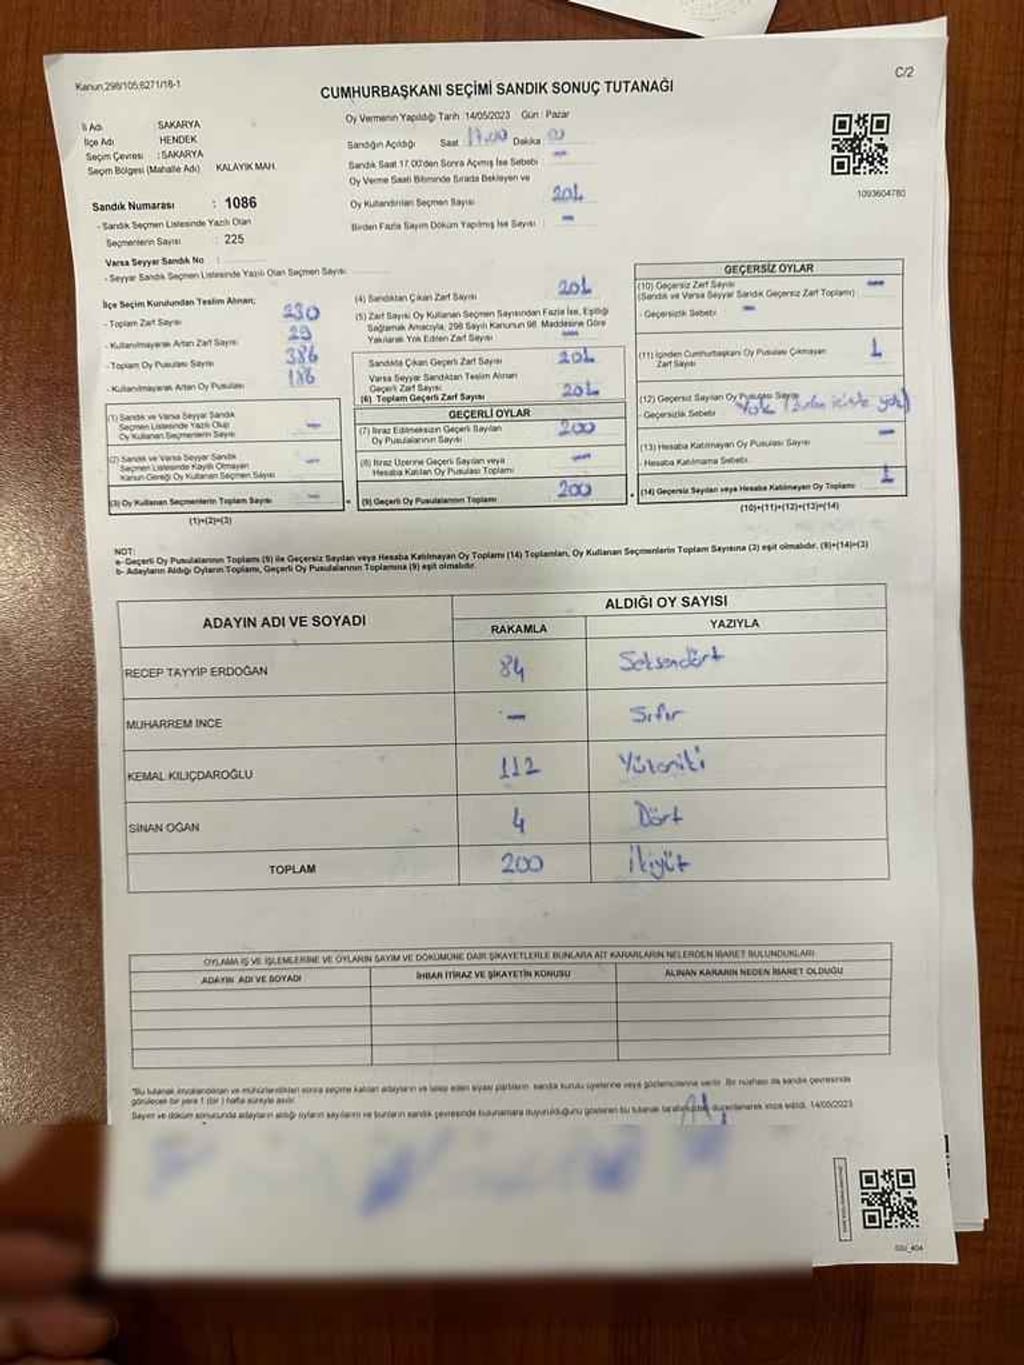 Kanun:298/105;6271/18-1
C/2
CUMHURBAŞKANI SEÇİMİ SANDIK SONUÇ TUTANAĞI
İl Adı SAKARYA
İlçe Adı HENDEK
Seçim Çevresi : SAKARYA
Seçim Bölgesi (Mahalle Adı) KALAYIK MAH.
Sandık Numarası : 1086
- Sandık Seçmen Listesinde Yazılı Olan
Seçmenlerin Sayısı : 225
Varsa Seyyar Sandık No :
- Seyyar Sandık Seçmen Listesinde Yazılı Olan Seçmen Sayısı
Oy Vermenin Yapıldığı Tarih :14/05/2023 Gün : Pazar
Sandığın Açıldığı Saat 17.00 Dakika
Sandık Saat 17.00'den Sonra Açımış İse Sebebi : —
Oy Verme Saati Bitiminde Sırada Bekleyen ve
Oy Kullandırılan Seçmen Sayısı 201
Birden Fazla Sayım Döküm Yapılmış İse Sayısı : —
1093604780
İlçe Seçim Kurulundan Teslim Alınan;
- Toplam Zarf Sayısı 230
- Kullanılmayarak Artan Zarf Sayısı 29
- Toplam Oy Pusulası Sayısı 386
- Kullanılmayarak Artan Oy Pusulası 186
(1) Sandık ve Varsa Seyyar Sandık
Seçmen Listesinde Yazılı Olup
Oy Kullanan Seçmenlerin Sayısı —
(2) Sandık ve Varsa Seyyar Sandık
Seçmen Listesinde Kayıtlı Olmayan
Kanun Gereği Oy Kullanan Seçmen Sayısı —
(3) Oy Kullanan Seçmenlerin Toplam Sayısı —
(1)+(2)=(3)
(4) Sandıktan Çıkan Zarf Sayısı 201
(5) Zarf Sayısı Oy Kullanan Seçmen Sayısından Fazla İse, Eşitliği
Sağlamak Amacıyla, 298 Sayılı Kanunun 98. Maddesine Göre
Yakılarak Yok Edilen Zarf Sayısı —
Sandıkta Çıkan Geçerli Zarf Sayısı 201
Varsa Seyyar Sandıktan Teslim Alınan
Geçerli Zarf Sayısı
(6) Toplam Geçerli Zarf Sayısı 201
GEÇERLİ OYLAR
(7) İtiraz Edilmeksizin Geçerli Sayılan
Oy Pusulalarının Sayısı 200
(8) İtiraz Üzerine Geçerli Sayılan veya
Hesaba Katılan Oy Pusulası Toplamı —
(9) Geçerli Oy Pusulalarının Toplamı 200
GEÇERSİZ OYLAR
(10) Geçersiz Zarf Sayısı —
(Sandık ve Varsa Seyyar Sandık Geçersiz Zarf Toplamı)
- Geçersizlik Sebebi : —
(11) İçinden Cumhurbaşkanı Oy Pusulası Çıkmayan
Zarf Sayısı 1
(12) Geçersiz Sayılan Oy Pusulası Sayısı
- Geçersizlik Sebebi Yok
(13) Hesaba Katılmayan Oy Pusulası Sayısı —
- Hesaba Katılmama Sebebi
(14) Geçersiz Sayılan veya Hesaba Katılmayan Oy Toplamı 1
(10)+(11)+(12)+(13)=(14)
NOT:
a- Geçerli Oy Pusulalarının Toplamı (9) ile Geçersiz Sayılan veya Hesaba Katılmayan Oy Toplamı (14) Toplamları, Oy Kullanan Seçmenlerin Toplam Sayısına (3) eşit olmalıdır. (9)+(14)=(3)
b- Adayların Aldığı Oyların Toplamı, Geçerli Oy Pusulalarının Toplamına (9) eşit olmalıdır.
ADAYIN ADI VE SOYADI
ALDIĞI OY SAYISI
RAKAMLA YAZIYLA
RECEP TAYYİP ERDOĞAN 84 Seksendört
MUHARREM İNCE — Sıfır
KEMAL KILIÇDAROĞLU 112 Yüzoniki
SİNAN OĞAN 4 Dört
TOPLAM 200 İkiyüz
OYLAMA İŞ VE İŞLEMLERİNE VE OYLARIN SAYIM VE DÖKÜMÜNE DAİR ŞİKAYETLERLE BUNLARA AİT KARARLARIN NELERDEN İBARET BULUNDUKLARI
ADAYIN ADI VE SOYADI İHBAR İTİRAZ VE ŞİKAYETİN KONUSU ALINAN KARARIN NEDEN İBARET OLDUĞU
*Bu tutanak imzalandıktan ve mühürlendikten sonra seçime katılan adayların ve talep eden siyasi partilerin sandık kurulu üyelerine veya gözlemcilerine verilir. Bir nüshası da sandık çevresinde
görülecek bir yere 1 (bir) hafta süreyle asılır.
Sayım ve döküm sonucunda adayların aldığı oyların sayılarını ve bunların sandık çevresinde bulunanlara duyurulduğunu gösteren bu tutanak düzenlenerek imza edildi. 14/05/2023